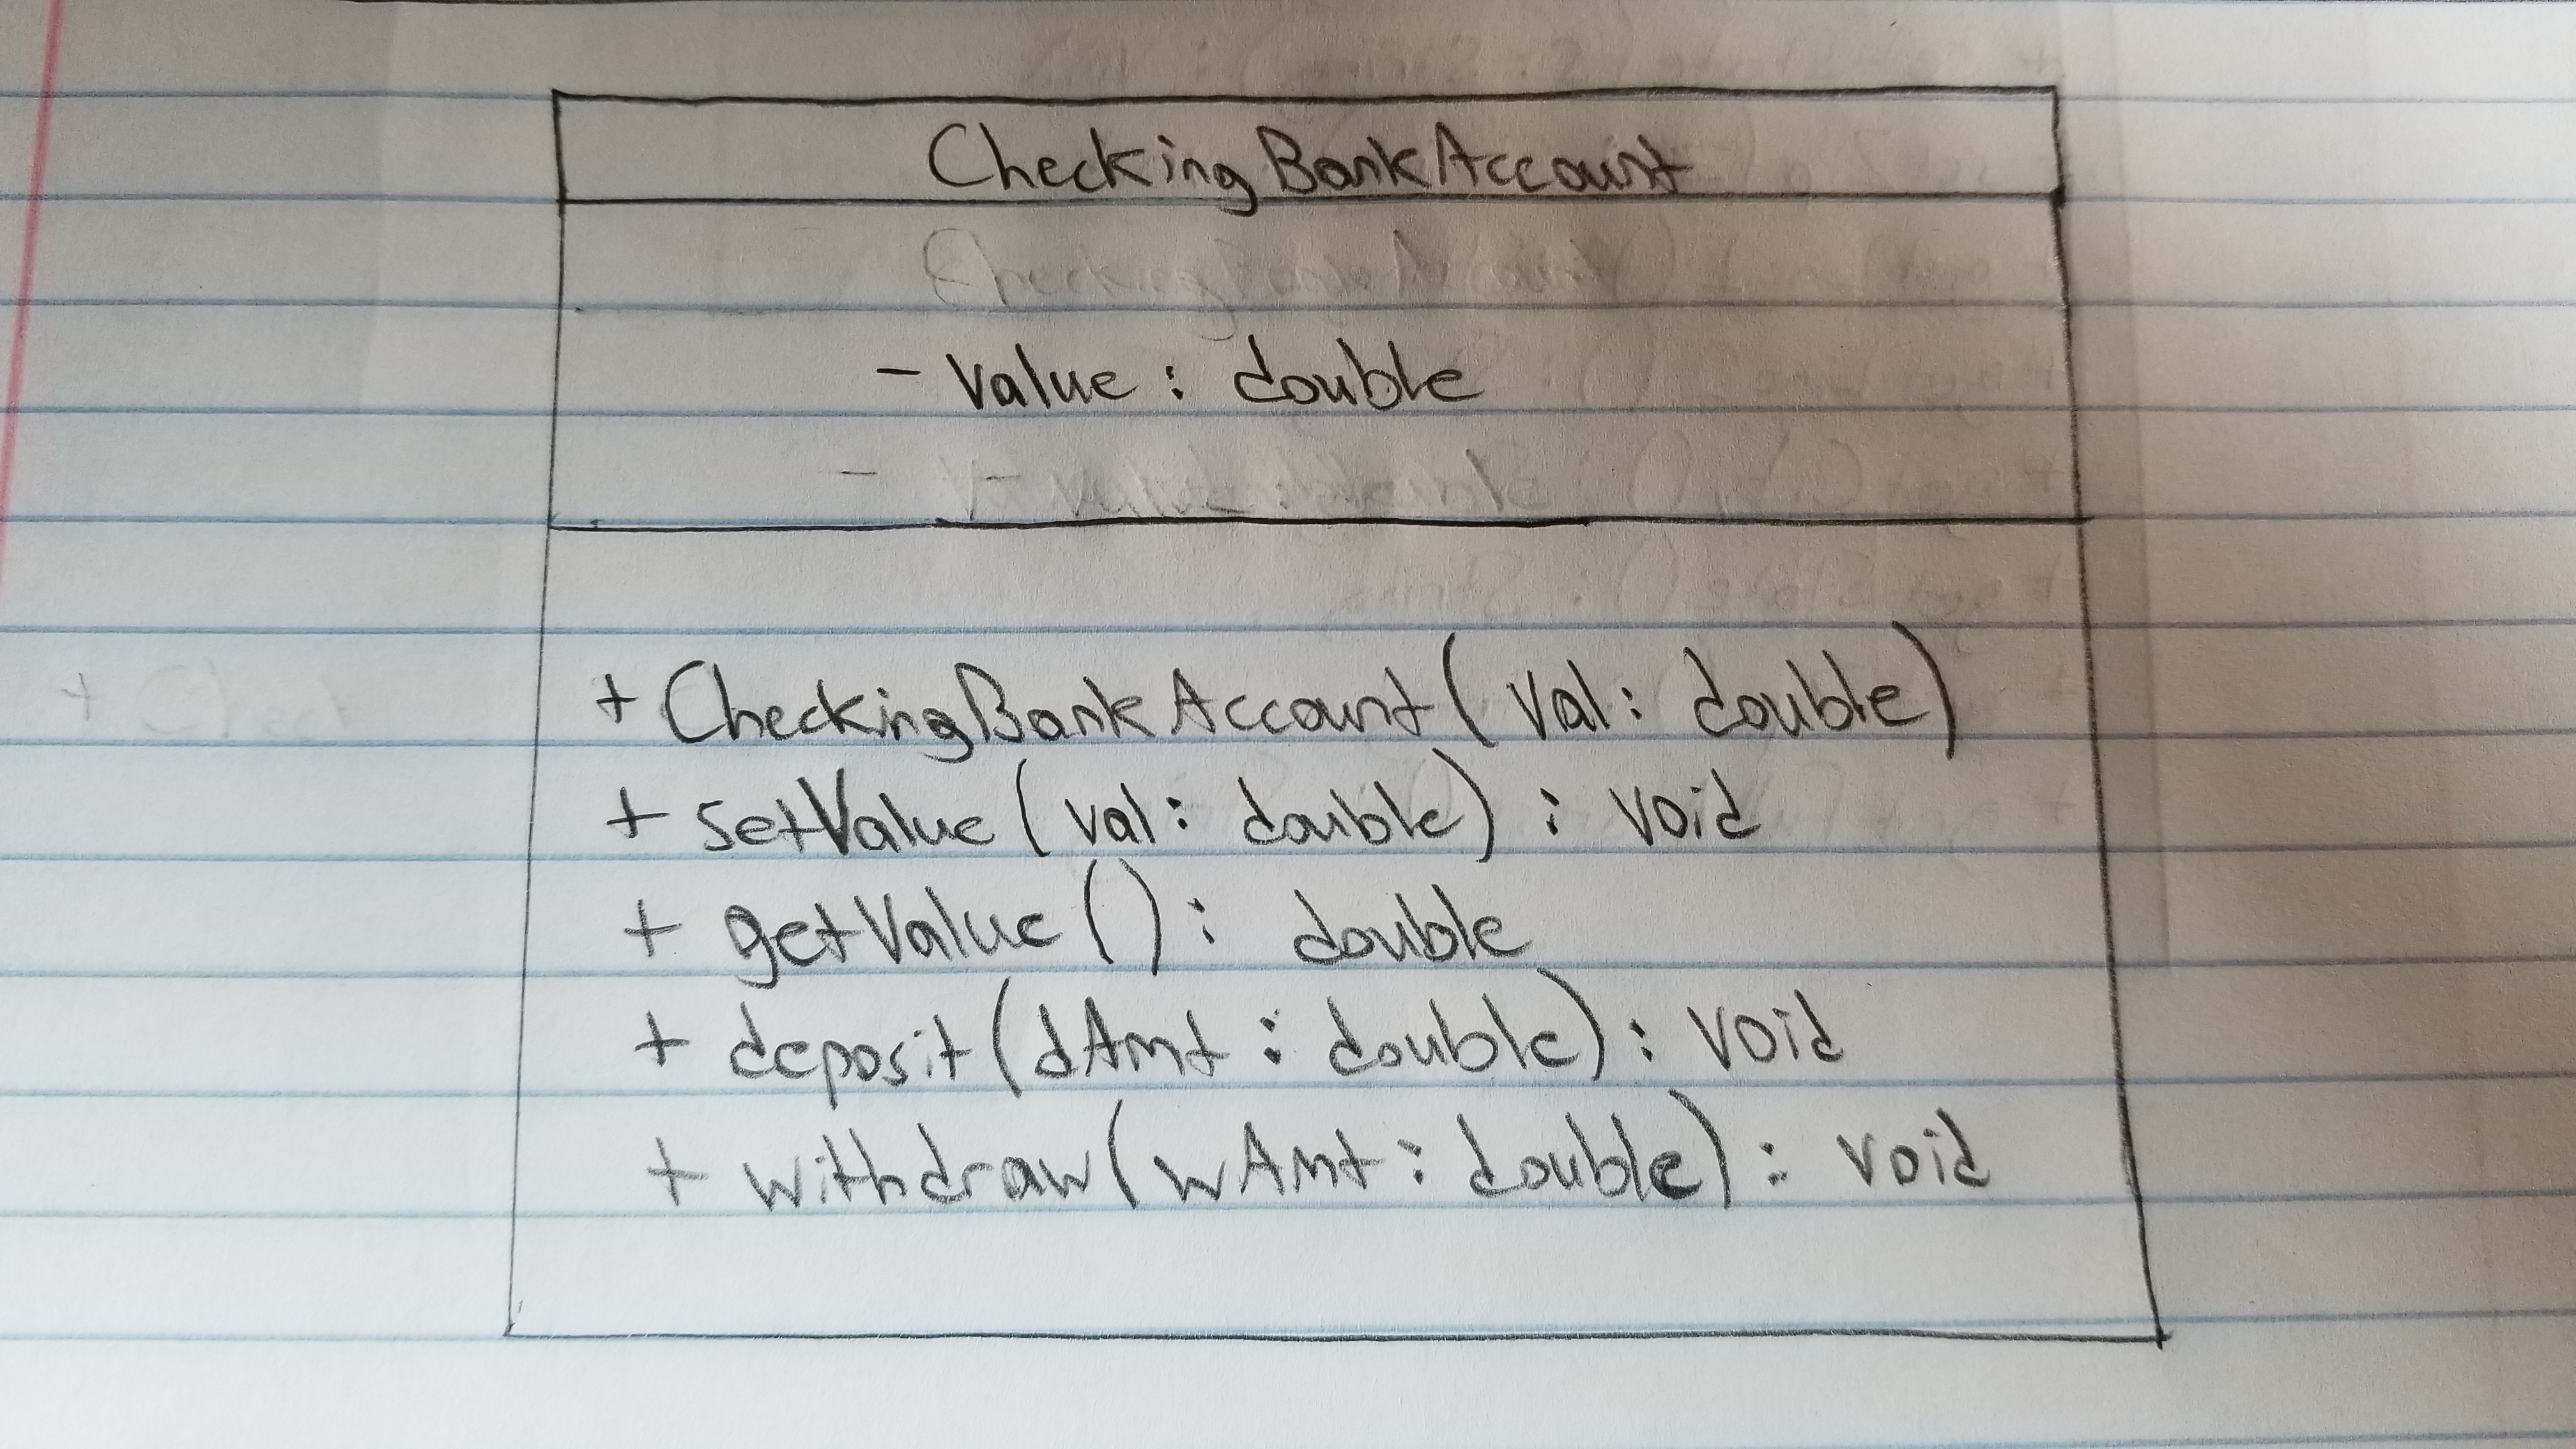 CheckingBankAccount
- value : double
+ CheckingBankAccount( val: double)
+ setValue (val: double) : void
+ getValue () : double
+ deposit (dAmt : double) : void
+ withdraw (wAmt : double) : void